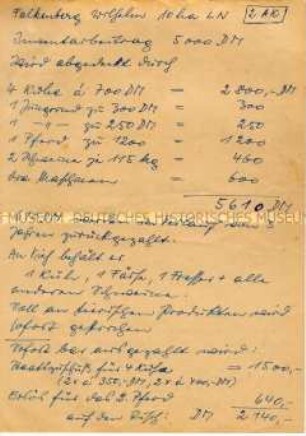 Falkenberg Wilhelm 10 ha LN 2 AK
Inventarbeitrag 5 000 DM
Wird abgedeckt durch
4 Kühe à 700 DM = 2 800,- DM
1 Jungrind zu 300 DM = 300
1 -"- zu 250 DM = 250
1 Pferd zu 1200 = 1200
2 Schweine je 115 kg = 460
bar = 600
5610 DM
MUSEUM DEUTSCHES HISTORISCHES MUSEUM
610,- DM werden im Verlauf von
Jahren zurückgezahlt.
An Vieh behält er
1 Kuh, 1 Färse, 1 Fresser + alle
anderen Schweine.
Soll an tierischen Produkten wird
sofort gestrichen
Sofort bar ausgezahlt wird:
Staatszuschuß für 4 Kühe = 1500,-
(2x à 350,- DM, 2x à 400,- DM)
Erlös für das 2. Pferd 640,-
auf den Tisch: DM 2 140,-